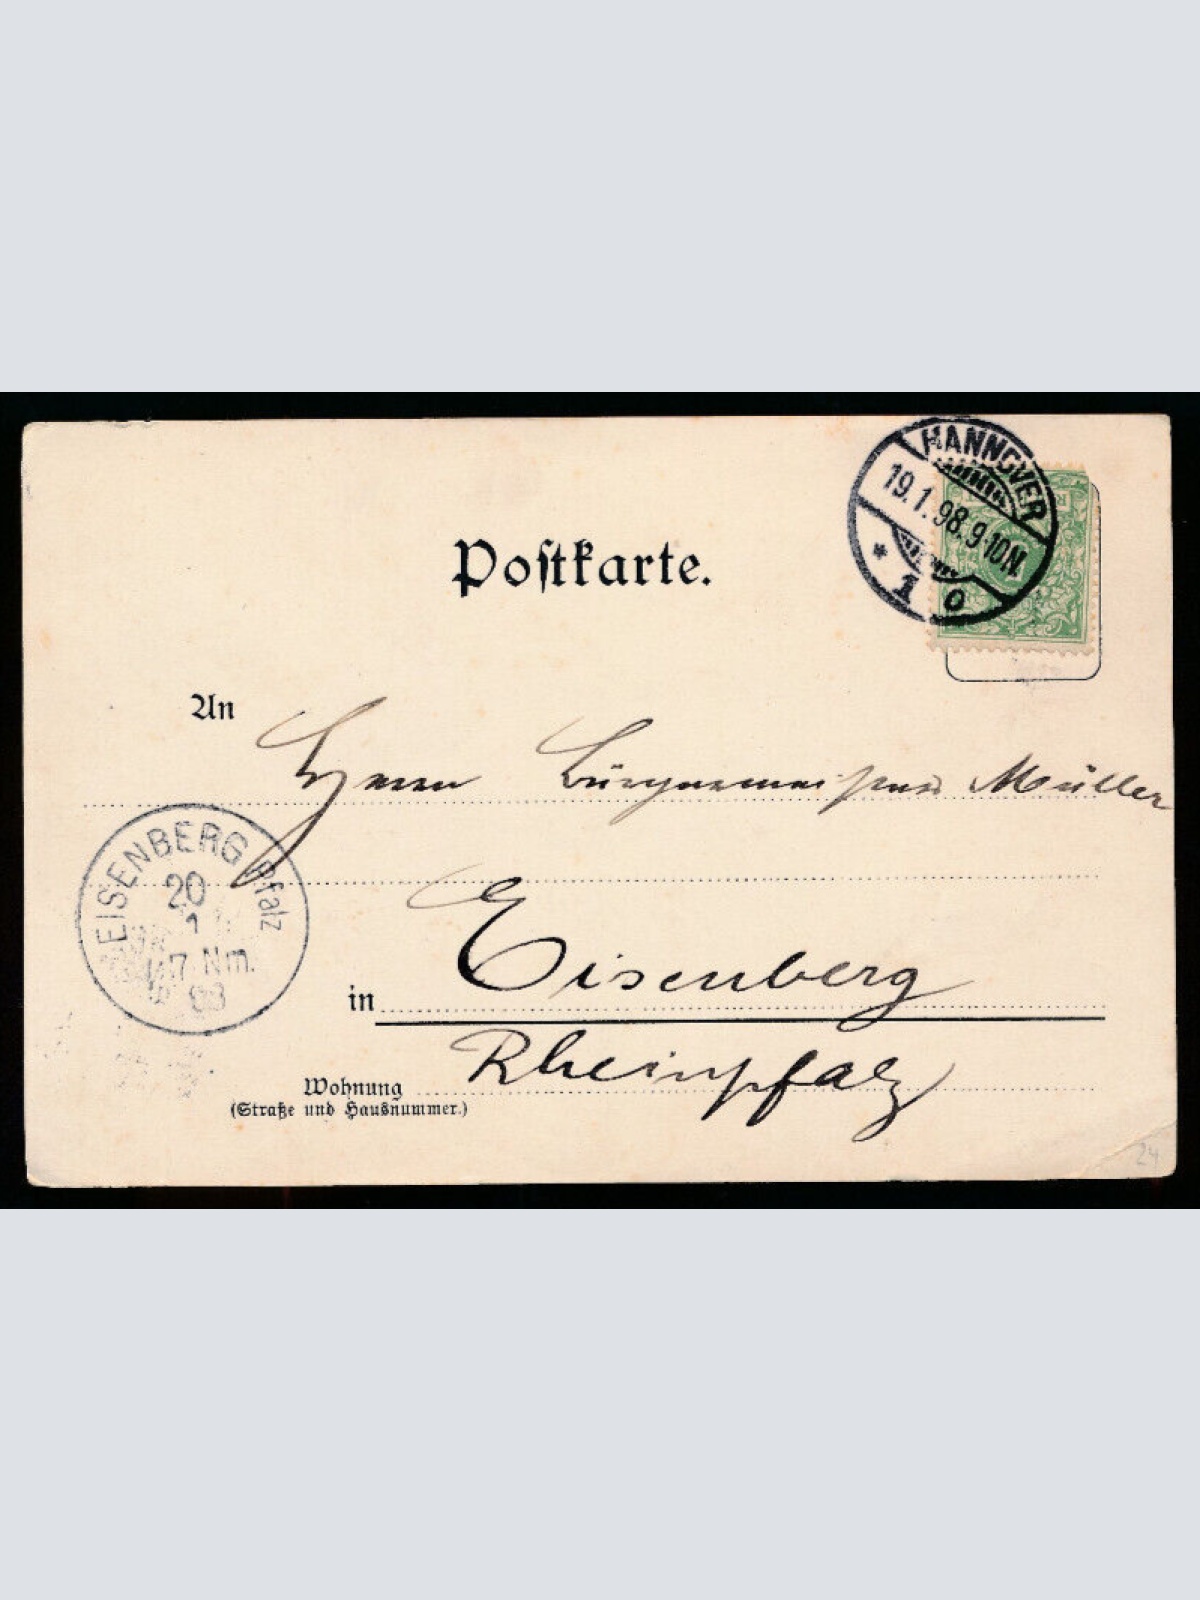 HANNOVER
19.1.98.9-10N.
* 1 o
Postkarte.
An
Herrn Bürgermeister Müller
EISENBERG Pfalz
20
1
7 Nm.
98
Eisenberg
in
Rheinpfalz
Wohnung
(Straße und Hausnummer.)
24